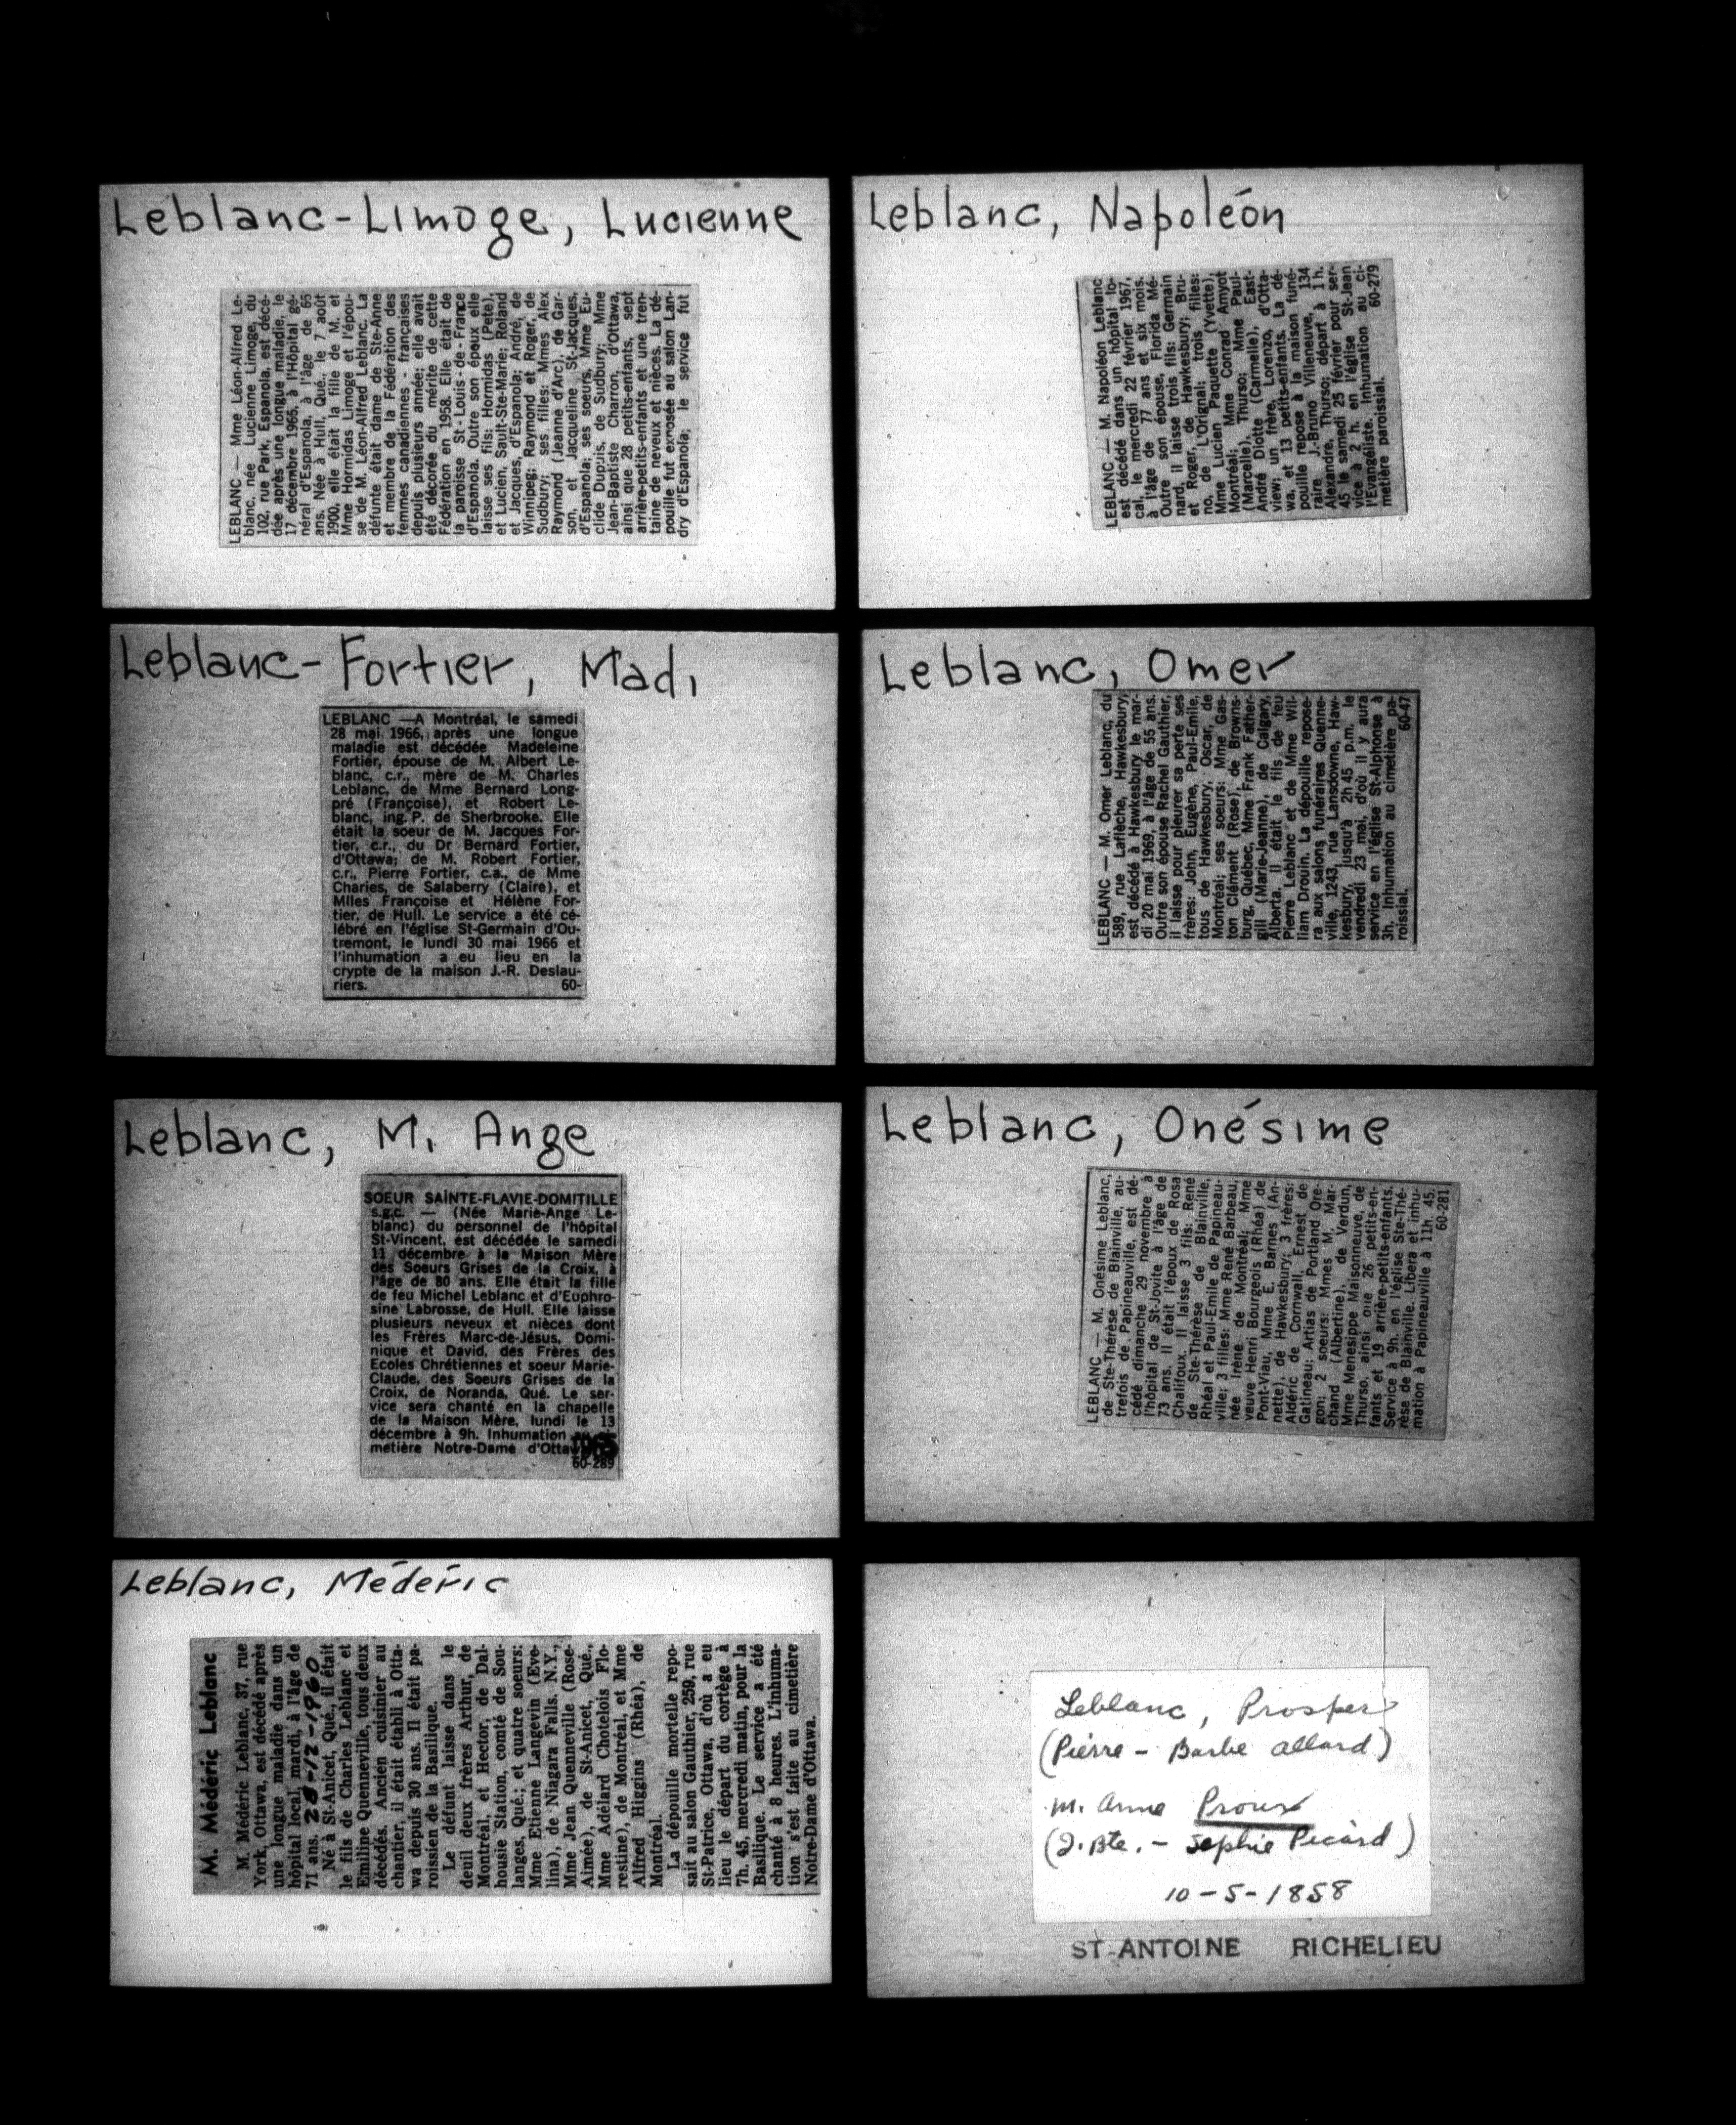 Leblanc-Limoge, Lucienne
LEBLANC — Mme Léon-Alfred Le-
blanc, née Lucienne Limoge, du
102, rue Park, Espanola, est décé-
dée après une longue maladie, le
17 décembre 1965, à l'Hôpital gé-
néral d'Espanola, à l'âge de 65
ans. Née à Hull, Qué., le 7 août
1900, elle était la fille de M. et
Mme Hormidas Limoge et l'épou-
se de M. Léon-Alfred Leblanc. La
défunte était dame de Ste-Anne
et membre de la Fédération des
femmes canadiennes - françaises
depuis plusieurs année; elle avait
été décorée du mérite de cette
Fédération en 1958. Elle était de
la paroisse St - Louis - de - France
d'Espanola. Outre son époux elle
laisse ses fils: Hormidas (Pete),
et Lucien, Sault-Ste-Marie; Roland
et Jacques, d'Espanola; André, de
Winnipeg; Raymond et Roger, de
Sudbury; ses filles: Mmes Alex
Raymond (Jeanne d'Arc), de Gar-
son, et Jacqueline St-Jacques,
d'Espanola; ses soeurs, Mme Eu-
clide Dupuis, de Sudbury; Mme
Jean-Baptiste Charron, d'Ottawa,
ainsi que 28 petits-entants, sept
arrière-petits-enfants et une tren-
taine de neveux et nièces. La dé-
pouille fut exposée au salon Lan-
dry d'Espanola; le service fut
Leblanc, Napoléon
LEBLANC — M. Napoléon Leblanc
est décédé dans un hôpital lo-
cal, le mercredi 22 février 1967,
à l'âge de 77 ans et six mois.
Outre son épouse, Florida Mé-
nard, il laisse trois fils: Germain
et Roger, de Hawkesbury; Bru-
no, de L'Orignal; trois filles:
Mme Lucien Paquette (Yvette),
Montréal; Mme Conrad Amyot
(Marcelle), Thurso; Mme Paul-
André Dilotte (Carmelle), East-
view; un frère, Lorenzo, d'Otta-
wa, et 13 petits-enfants. La dé-
pouille repose à la maison funé-
raire J.-Bruno Villeneuve, 134
Alexandre, Thurso; départ à 1 h.
45 le samedi 25 février pour ser-
vice à 2 h. en l'église St-Jean
l'Evangéliste. Inhumation au ci-
metière paroissial. 60-279
Leblanc-Fortier, Mad.
LEBLANC —A Montréal, le samedi
28 mai 1966, après une longue
maladie est décédée Madeleine
Fortier, épouse de M. Albert Le-
blanc, c.r., mère de M. Charles
Leblanc, de Mme Bernard Long-
pré (Françoise), et Robert Le-
blanc, ing. P. de Sherbrooke. Elle
était la soeur de M. Jacques For-
tier, c.r., du Dr Bernard Fortier,
d'Ottawa; de M. Robert Fortier,
c.r., Pierre Fortier, c.a., de Mme
Charles, de Salaberry (Claire), et
Mlles Françoise et Hélène For-
tier, de Hull. Le service a été cé-
lébré en l'église St-Germain d'Ou-
tremont, le lundi 30 mai 1966 et
l'inhumation a eu lieu en la
crypte de la maison J.-R. Deslau-
riers. 60-
Leblanc, Omer
LEBLANC — M. Omer Leblanc, du
589, rue Laflèche, Hawkesbury,
est décédé à Hawkesbury le mar-
di 20 mai 1969, à l'âge de 55 ans.
Outre son épouse Rachel Gauthier,
il laisse pour pleurer sa perte ses
frères: John, Eugène, Paul-Emile,
tous de Hawkesbury, Oscar, de
Montréal; ses soeurs: Mme Gas-
ton Clément (Rose), de Browns-
burg, Québec, Mme Frank Father-
gill (Marie-Jeanne), de Calgary,
Alberta. Il était le fils de feu
Pierre Leblanc et de Mme Wil-
liam Drouin. La dépouille repose-
ra aux salons funéraires Quenne-
ville, 1243, rue Lansdowne, Haw-
kesbury, jusqu'à 2h 45 p.m. le
vendredi 23 mai, d'où il y aura
service en l'église St-Alphonse à
3h. Inhumation au cimetière pa-
roissial. 60-47
Leblanc, M. Ange
SOEUR SAINTE-FLAVIE-DOMITILLE
s.g.c. — (Née Marie-Ange Le-
blanc) du personnel de l'hôpital
St-Vincent, est décédée le samedi
11 décembre à la Maison Mère
des Soeurs Grises de la Croix, à
l'âge de 80 ans. Elle était la fille
de feu Michel Leblanc et d'Euphro-
sine Labrosse, de Hull. Elle laisse
plusieurs neveux et nièces dont
les Frères Marc-de-Jésus, Domi-
nique et David, des Frères des
Ecoles Chrétiennes et soeur Marie-
Claude, des Soeurs Grises de la
Croix, de Noranda, Qué. Le ser-
vice sera chanté en la chapelle
de la Maison Mère, lundi le 13
décembre à 9h. Inhumation
metière Notre-Dame d'Ottawa
60-289
Leblanc, Onésime
LEBLANC — M. Onésime Leblanc,
de Ste-Thérèse de Blainville, au-
trefois de Papineauville, est dé-
cédé dimanche 29 novembre à
l'hôpital de St-Jovite à l'âge de
73 ans. Il était l'époux de Rosa
Chalifoux. Il laisse 3 fils: René
de Ste-Thérèse de Blainville,
Rhéal et Paul-Emile de Papineau-
ville; 3 filles: Mme René Barbeau,
née Irène de Montréal; Mme
veuve Henri Bourgeois (Rhéa) de
Pont-Viau, Mme E. Barnes (An-
nette), de Hawkesbury; 3 frères:
Aldéric de Cornwall, Ernest de
Gatineau; Artias de Portland Ore-
gon; 2 soeurs: Mmes M. Mar-
chand (Albertine), de Verdun,
Mme Menesippe Maisonneuve, de
Thurso, ainsi que 26 petits-en-
fants et 19 arrière-petits-enfants.
Service à 9h. en l'église Ste-Thé-
rèse de Blainville. Libera et inhu-
mation à Papineauville à 11h. 45.
60-281
Leblanc, Médéric
M. Médéric Leblanc
M. Médéric Leblanc, 37, rue
York, Ottawa, est décédé après
une longue maladie dans un
hôpital local, mardi, à l'âge de
71 ans. 28-12-1960
Né à St-Anicet, Qué., il était
le fils de Charles Leblanc et
Emiline Quenneville, tous deux
décédés. Ancien cuisinier au
chantier, il était établi à Otta-
wa depuis 30 ans. Il était pa-
roissien de la Basilique.
Le défunt laisse dans le
deuil deux frères Arthur, de
Montréal, et Hector, de Dal-
housie Station, comté de Sou-
langes, Qué.; et quatre soeurs:
Mme Etienne Langevin (Eve-
lina), de Niagara Falls, N.Y.,
Mme Jean Quenneville (Rose-
Aimée), de St-Anicet, Qué.,
Mme Adélard Chotelois Flo-
restine), de Montréal, et Mme
Alfred Higgins (Rhéa), de
Montréal.
La dépouille mortelle repo-
sait au salon Gauthier, 259, rue
St-Patrice, Ottawa, d'où a eu
lieu le départ du cortège à
7h. 45, mercredi matin, pour la
Basilique. Le service a été
chanté à 8 heures. L'inhuma-
tion s'est faite au cimetière
Notre-Dame d'Ottawa.
Leblanc, Prosper
(Pierre - Barbe Allard)
m. Anne Proux
(J. Bte. - Sophie Picard)
10-5-1858
ST-ANTOINE RICHELIEU